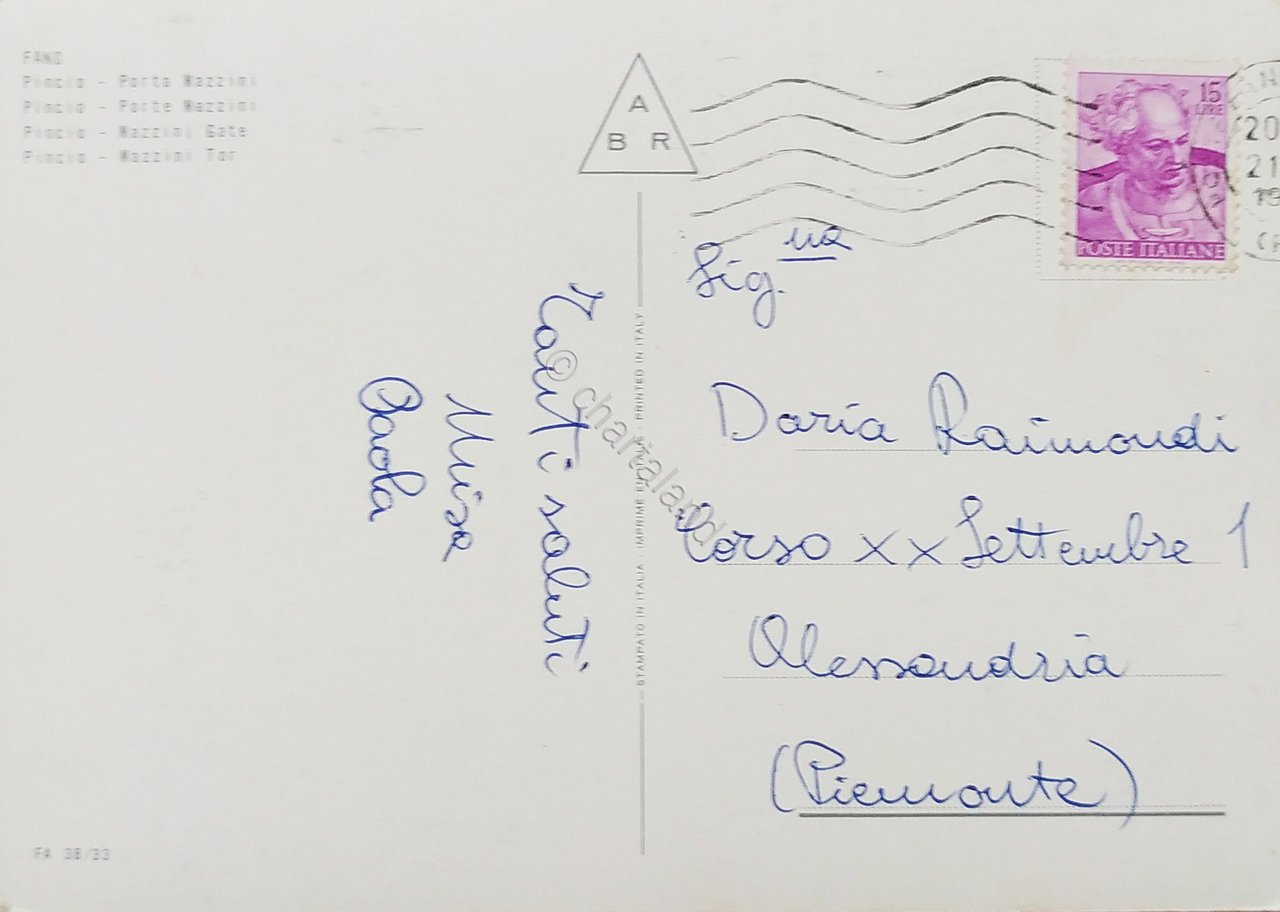 FANO
Pincio - Porta Mazzini
Pincio - Porte Mazzini
Pincio - Mazzini Gate
Pincio - Mazzini Tor
A
B R
15
LIRE
POSTE ITALIANE
20
21
19
Sig.na
Daria Raimondi
Corso XX Settembre 1
Alessandria
(Piemonte)
Tanti saluti
Paola
STAMPATO IN ITALIA - IMPRIME EN ITALIE - PRINTED IN ITALY
© chartaland
FA 38/33